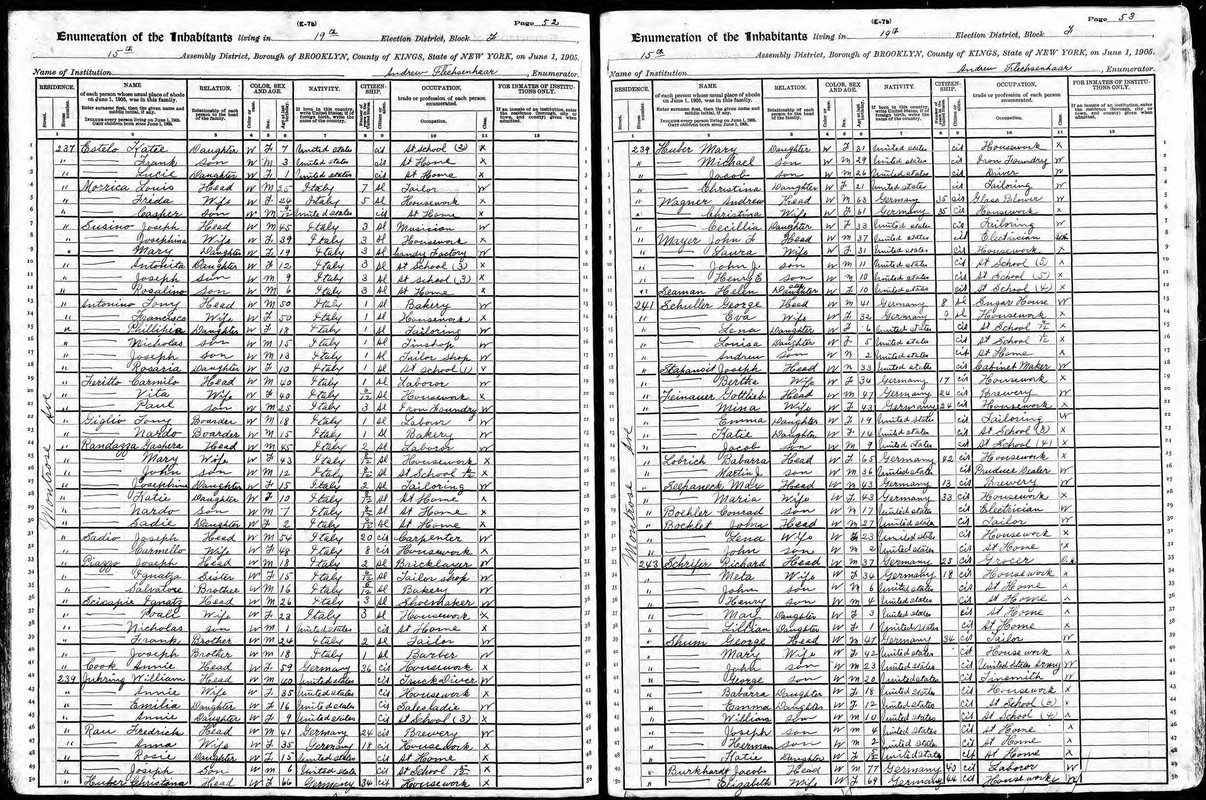 (E-7b)
Page 52
Enumeration of the Inhabitants living in 19th Election District, Block F
15th Assembly District, Borough of BROOKLYN, County of KINGS, State of NEW YORK, on June 1, 1905.
Name of Institution Andrew Flechsenhaar, Enumerator.
RESIDENCE. NAME RELATION. COLOR, SEX AND AGE. NATIVITY. CITIZENSHIP. OCCUPATION. FOR INMATES OF INSTITUTIONS ONLY.
Montrose Ave
1 237 Estelo Katie Daughter W F 7 United States cit At School (2) X
2 " Frank Son W M 3 United States cit At Home X
3 " Lucie Daughter W F 1 United States cit At Home X
4 " Morrica Louis Head W M 25 Italy 7 Al Tailor W
5 " Frida Wife W F 24 Italy 5 Al Housework X
6 " Casper Son W M United States cit At Home X
7 " Susino Joseph Head W M 45 Italy 3 Al Musician W
8 " Josephina Wife W F 39 Italy 3 Al Housework X
9 " Mary Daughter W F 19 Italy 3 Al Candy Factory W
10 " Antonita Daughter W F 12 Italy 3 Al At School (3) X
11 " Joseph Son W M 9 Italy 3 Al At School (3) X
12 " Rosalino Son W M 6 Italy 3 Al At Home X
13 " Antonino Tony Head W M 50 Italy 1 Al Bakery W
14 " Francisco Wife W F 50 Italy 1 Al Housework X
15 " Phillipia Daughter W F 18 Italy 1 Al Tailoring W
16 " Nicholas Son W M 15 Italy 1 Al Tinshop W
17 " Joseph Son W M 13 Italy 1 Al Tailor Shop W
18 " Rosaria Daughter W F 10 Italy 1 Al At School (1) X
19 " Feritto Carmilo Head W M 40 Italy 1 Al Laboror W
20 " Vita Wife W F 40 Italy Al Housework X
21 " Paul Son W M 25 Italy 3 Al Iron Foundry W
22 " Giglio Tony Boarder W M 18 Italy 1 Al Labour W
23 " Nardo Boarder W M 15 Italy 1 Al Bakery W
24 " Randazza Gaspere Head W M 45 Italy 2 Al Laboror W
25 " Mary Wife W F 43 Italy Al Housework X
26 " John Son W M 12 Italy Al At School X
27 " Josephine Daughter W F 15 Italy 2 Al Tailoring W
28 " Katie Daughter W F 10 Italy Al At Home X
29 " Nardo Son W M 7 Italy Al At Home X
30 " Sadie Daughter W F 2 Italy Al At Home X
31 " Sadio Joseph Head W M 54 Italy 20 cit Carpenter W
32 " Carmello Wife W F 48 Italy 8 cit Housework X
33 " Piazzo Joseph Head W M 18 Italy 2 Al Bricklayer W
34 " Ignatza Sister W F 15 Italy Al Tailor shop W
35 " Salvatore Brother W M 16 Italy Al Bakery W
36 " Scicapie Ignatz Head W M 26 Italy 3 Al Shoemaker W
37 " Wife W F 23 Italy 3 Al Housework X
38 " Nicholas Son W M 1 United States cit At Home X
39 " Frank Brother W M 24 Italy 2 Al Tailor W
40 " Joseph Brother W M 18 Italy 1 Al Barber W
41 " Cook Annie Head W F 59 Germany 36 cit Housework X
42 239 Juhring William Head W M 40 United States cit Truck Driver W
43 " Annie Wife W F 35 United States cit Housework X
44 " Emilia Daughter W F 16 United States cit Salesladie W
45 " Annie Daughter W F 9 United States cit At School (3) X
46 " Rau Fredrich Head W M 41 Germany 24 cit Brewery W
47 " Anna Wife W F 35 Germany 18 cit Housework X
48 " Rosie Daughter W F 15 United States cit At Home X
49 " Joseph Son W M 6 United States cit At School X
50 " Huber Christina Head W F 66 Germany 34 cit Housework X
(E-7b)
Page 53
Enumeration of the Inhabitants living in 19th Election District, Block F
15th Assembly District, Borough of BROOKLYN, County of KINGS, State of NEW YORK, on June 1, 1905.
Name of Institution Andrew Flechsenhaar, Enumerator.
RESIDENCE. NAME RELATION. COLOR, SEX AND AGE. NATIVITY. CITIZENSHIP. OCCUPATION. FOR INMATES OF INSTITUTIONS ONLY.
Montrose Ave
1 239 Huber Mary Daughter W F 31 United States cit Housework X
2 " Michael Son W M 29 United States cit Iron Foundry W
3 " Jacob Son W M 26 United States cit Driver W
4 " Christina Daughter W F 21 United States cit Tailoring W
5 " Wagner Andrew Head W M 63 Germany 35 cit Glass Blower W
6 " Christina Wife W F 61 Germany 35 cit Housework X
7 " Cecillia Daughter W F 33 United States cit Tailoring W
8 " Mayer John F Head W M 37 United States cit Electrician
9 " Laura Wife W F 31 United States cit Housework X
10 " John J. Son W M 11 United States cit At School (5) X
11 " Henry E Son W M 10 United States cit At School (5) X
12 " Seaman Helen Daughter W F 10 United States cit At School (4) X
13 241 Schuller George Head W M 41 Germany 8 Al Sugar House W
14 " Eva Wife W F 32 Germany 9 Al Housework X
15 " Lena Daughter W F 6 United States cit At School X
16 " Louisa Daughter W F 5 United States cit At School X
17 " Andrew Son W M 2 United States cit At Home X
18 " Stapansit Joseph Head W M 33 United States cit Cabinet Maker W
19 " Bertha Wife W F 34 Germany 17 cit Housework X
20 " Feinauer Gottlieb Head W M 47 Germany 24 cit Brewery W
21 " Mina Wife W F 43 Germany 24 cit Housework X
22 " Emma Daughter W F 19 United States cit Tailoring W
23 " Katie Daughter W F 14 United States cit At School (8) X
24 " Jacob Son W M 9 United States cit At School (4) X
25 " Lobrich Babarra Head W F 65 Germany 42 cit Housework X
26 " Martin J. Son W M 36 United States cit Produce Dealer W
27 " Seepaneck Max Head W M 43 Germany 13 cit Brewery W
28 " Maria Wife W F 43 Germany 33 cit Housework X
29 " Boehler Conrad Son W M 17 United States cit Electrician W
30 " Bocklet John Head W M 27 United States cit Tailor W
31 " Lena Wife W F 23 United States cit Housework X
32 " John Son W M 2 United States cit At Home X
33 243 Schrifer Richard Head W M 37 Germany 23 cit Grocer
34 " Meta Wife W F 34 Germany 18 cit Housework X
35 " John Son W M 6 United States cit At Home X
36 " Henry Son W M 4 United States cit At Home X
37 " Mary Daughter W F 3 United States cit At Home X
38 " Lillian Daughter W F 1 United States cit At Home X
39 " Shum George Head W M 47 Germany 34 cit Tailor W
40 " Mary Wife W F 42 United States cit Housework X
41 " John Son W M 23 United States cit United States Army W
42 " George Son W M 20 United States cit Tinsmith W
43 " Babarra Daughter W F 18 United States cit Housework X
44 " Emma Daughter W F 12 United States cit At School X
45 " William Son W M 10 United States cit At School X
46 " Joseph Son W M 4 United States cit At Home X
47 " Herman Son W M 2 United States cit At Home X
48 " Katie Daughter W F United States cit At Home X
49 " Burkhardt Jacob Head W M 77 Germany 43 cit Laboror W
50 " Elizabeth Wife W F 69 Germany 44 cit Housework W